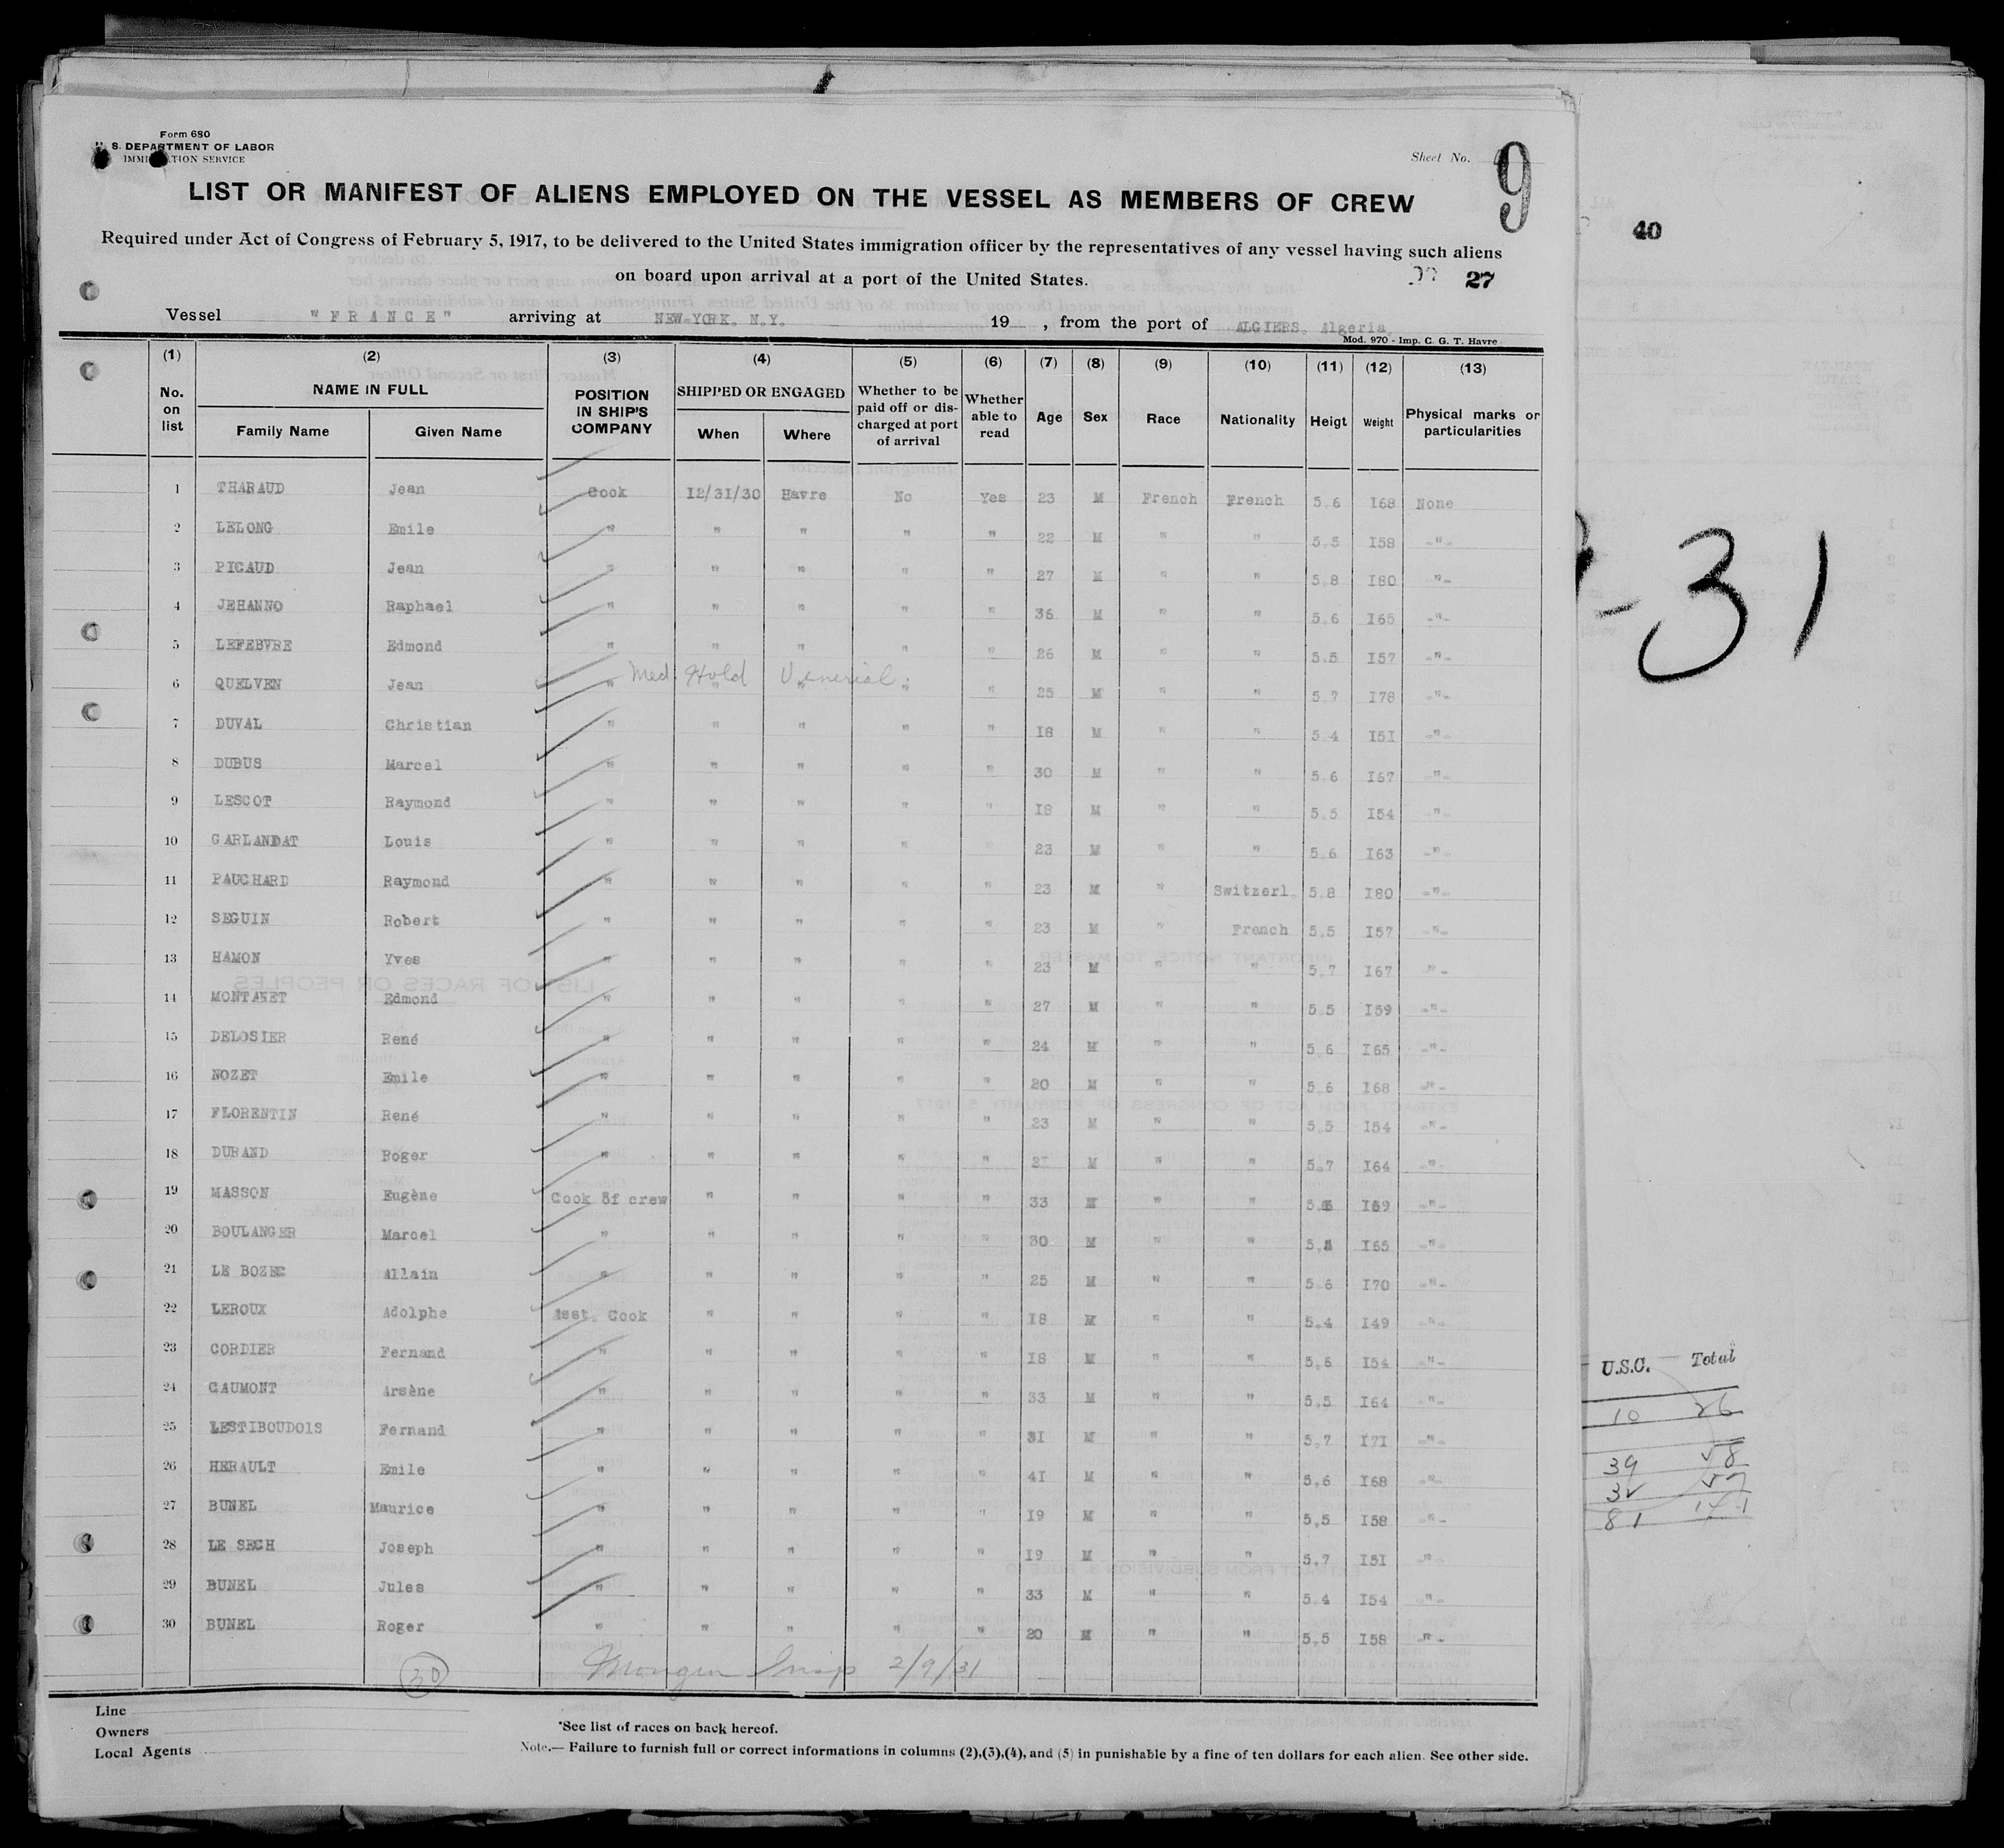 Form 680
U. S. DEPARTMENT OF LABOR
IMMIGRATION SERVICE
Sheet No. 9
LIST OR MANIFEST OF ALIENS EMPLOYED ON THE VESSEL AS MEMBERS OF CREW
Required under Act of Congress of February 5, 1917, to be delivered to the United States immigration officer by the representatives of any vessel having such aliens
on board upon arrival at a port of the United States.
27
40
Vessel "FRANCE" arriving at NEW-YORK. N.Y. 19 , from the port of ALGIERS. Algeria.
Mod. 970 - Imp. C. G. T. Havre
(1) (2) (3) (4) (5) (6) (7) (8) (9) (10) (11) (12) (13)
No. on list NAME IN FULL Family Name Given Name POSITION IN SHIP'S COMPANY SHIPPED OR ENGAGED When Where Whether to be paid off or dis-charged at port of arrival Whether able to read Age Sex Race Nationality Heigt Weight Physical marks or particularities
1 THARAUD Jean Cook 12/31/30 Havre No Yes 23 M French French 5.6 I68 None
2 LELONG Emile " " " " " 22 M " " 5.5 I58 -"-
3 PICAUD Jean " " " " " 27 M " " 5.8 I80 "-
4 JEHANNO Raphael " " " " " 36 M " " 5.6 I65 -"-
5 LEFEBVRE Edmond " " " " " 26 M " " 5.5 I57 -"-
Med Hold Venerial.
6 QUELVEN Jean " " " " " 25 M " " 5.7 I78 -"-
7 DUVAL Christian " " " " " I8 M " " 5.4 I5I -"-
8 DUBUS Marcel " " " " " 30 M " " 5.6 I67 "-
9 LESCOT Raymond " " " " " I8 M " " 5.5 I54 -"-
10 GARLANDAT Louis " " " " " 23 M " " 5.6 I63 -"-
11 PAUCHARD Raymond " " " " " 23 M " Switzerl. 5.8 I80 -"-
12 SEGUIN Robert " " " " " 23 M " French 5.5 I57 -"-
13 HAMON Yves " " " " " 23 M " " 5.7 I67 "-
14 MONTANET Edmond " " " " " 27 M " " 5.5 I59 -"-
15 DELOSIER René " " " " " 24 M " " 5.6 I65 -"-
16 NOZET Emile " " " " " 20 M " " 5.6 I68 -"-
17 FLORENTIN René " " " " " 23 M " " 5.5 I54 -"-
18 DURAND Roger " " " " " 2I M " " 5.7 I64 -"-
19 MASSON Eugène Cook of crew " " " " 33 M " " 5. -"-
20 BOULANGER Marcel " " " " " 30 M " " 5. I65 -"-
21 LE BOZEC Allain " " " " " 25 M " " 5.6 I70 -"-
22 LEROUX Adolphe Asst. Cook " " " " I8 M " " 5.4 I49 -"-
23 CORDIER Fernand " " " " " I8 M " " 5.6 I54 -"-
24 CAUMONT Arsène " " " " " 33 M " " 5.5 I64 -"-
25 LESTIBOUDOIS Fernand " " " " " 3I M " " 5.7 I7I -"-
26 HERAULT Emile " " " " " 4I M " " 5.6 I68 -"-
27 BUNEL Maurice " " " " " I9 M " " 5.5 I58 -"-
28 LE SECH Joseph " " " " " I9 M " " 5.7 I5I -"-
29 BUNEL Jules " " " " " 33 M " " 5.4 I54 -"-
30 BUNEL Roger " " " " " 20 M " " 5.5 I58 -"-
30
Insp 2/9/31
Line
Owners
Local Agents
*See list of races on back hereof.
Note.— Failure to furnish full or correct informations in columns (2),(3),(4), and (5) in punishable by a fine of ten dollars for each alien. See other side.
-31
U.S.C. Total
10 26
39
81